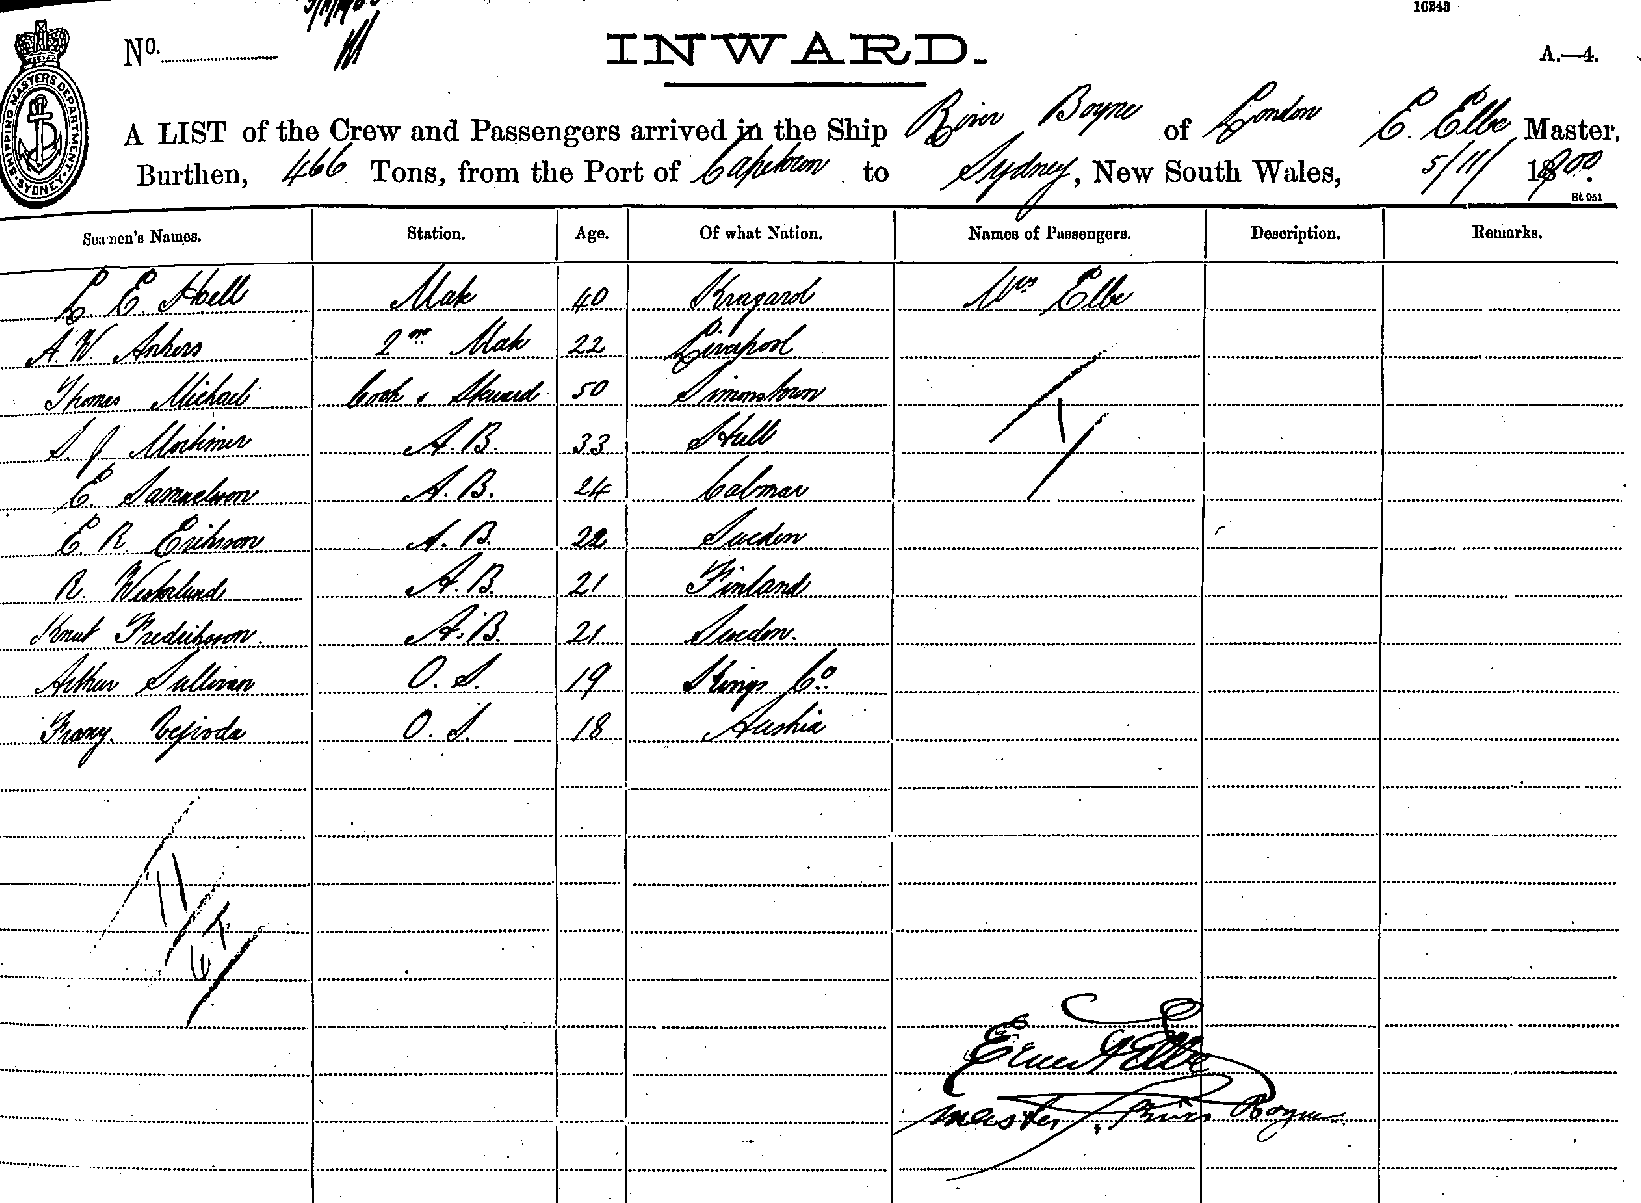 10243
No.
INWARD.
A.—4.
SHIPPING MASTERS DEPARTMENT SYDNEY
A LIST of the Crew and Passengers arrived in the Ship River Boyne of London E. Elbe Master,
Burthen, 466 Tons, from the Port of Capetown to Sydney, New South Wales, 5/11/ 1900.
St 951
Seamen's Names. Station. Age. Of what Nation. Names of Passengers. Description. Remarks.
E. Hoell Mate 40 Mrs Elbe
A. W. Ankers 2nd Mate 22 Liverpool
Thomas Michael Cook & Steward 50 Simonstown
S. J. Mortimer A. B. 33 Hull
E. Samuelson A. B. 24 Calmar
E. R. Eriksson A. B. 22 Sweden
R. Westerlund A. B. 21 Finland
Knut Fredriksson A. B. 21 Sweden.
Arthur Sullivan O. S. 19 Kings Co.
Franz O. S. 18 Austria
1
11
Ernest Elbe
Master, River Boyne